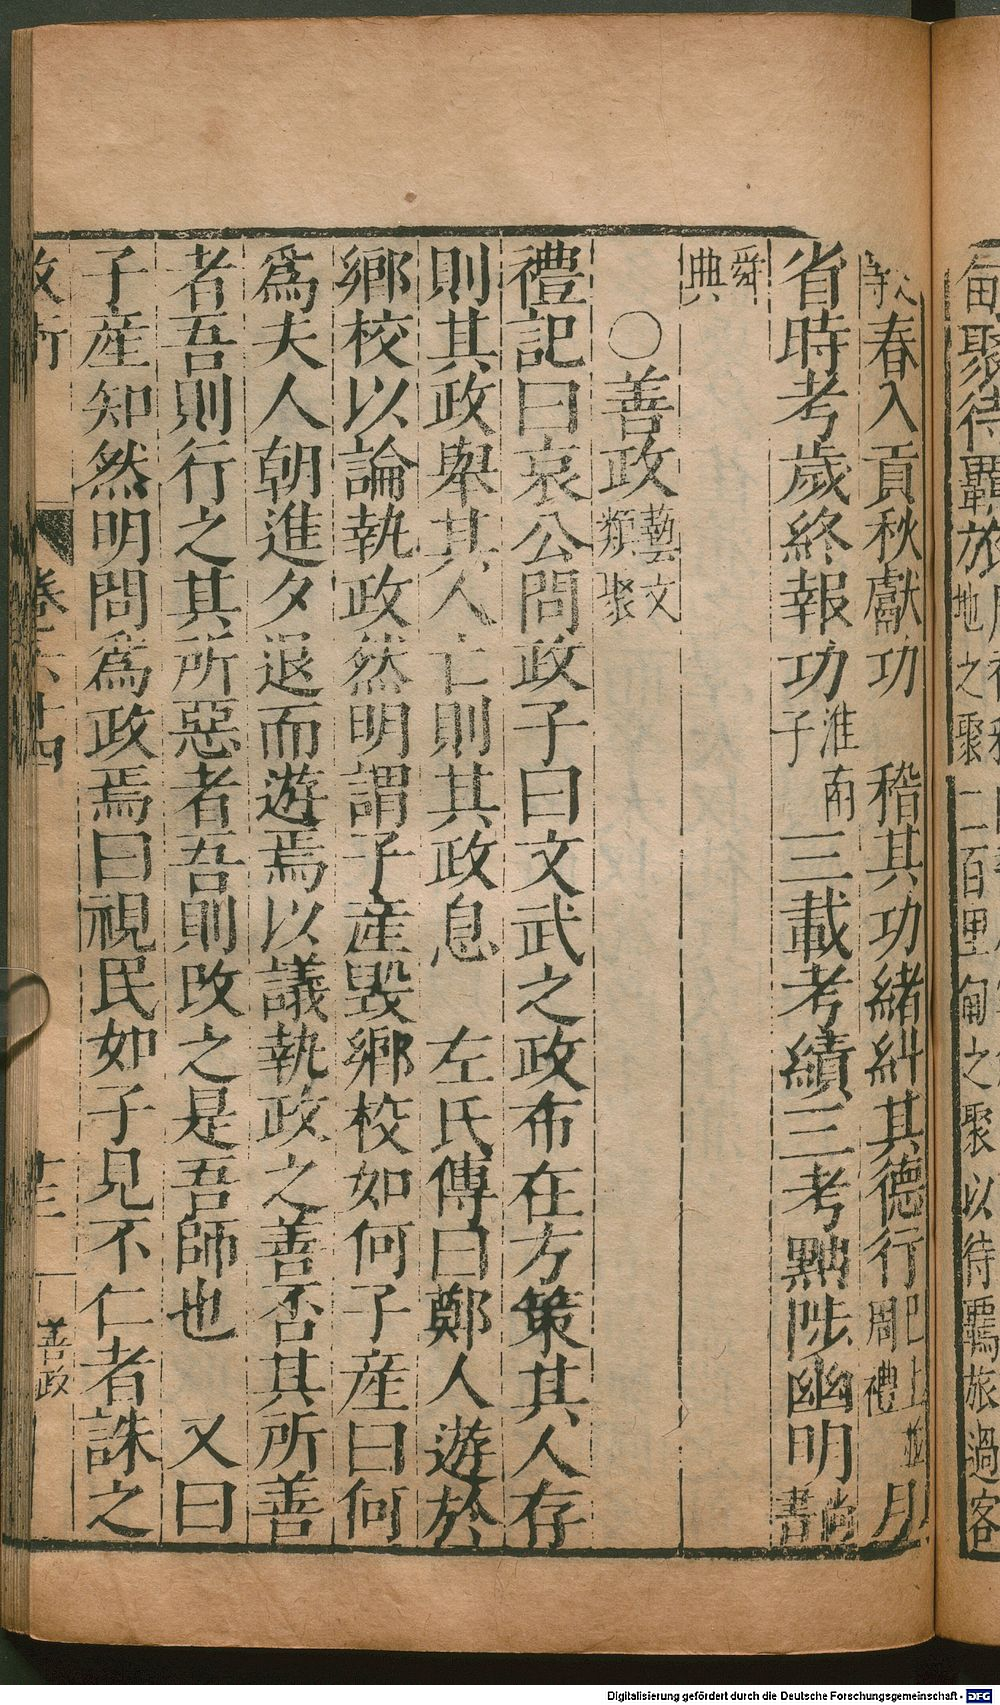 甸聚待羈旅
地之聚
二百里甸之聚以待羈旅過客
春入貢秋獻功　稽其功緒糾其德行巳上並周禮月
省時考歲終報功淮南子三載考績三考黜陟幽明尚書
舜典
○善政藝文類聚
禮記曰哀公問政子曰文武之政布在方策其人存
則其政舉其人亡則其政息　左氏傳曰鄭人遊於
鄉校以論執政然明謂子産毀鄉校如何子産曰何
爲夫人朝進夕退而遊焉以議執政之善否其所善
者吾則行之其所惡者吾則改之是吾師也　又曰
子産知然明問爲政焉曰視民如子見不仁者誅之
政術　卷六十四　十三　善政
Digitalisierung gefördert durch die Deutsche Forschungsgemeinschaft - DFG